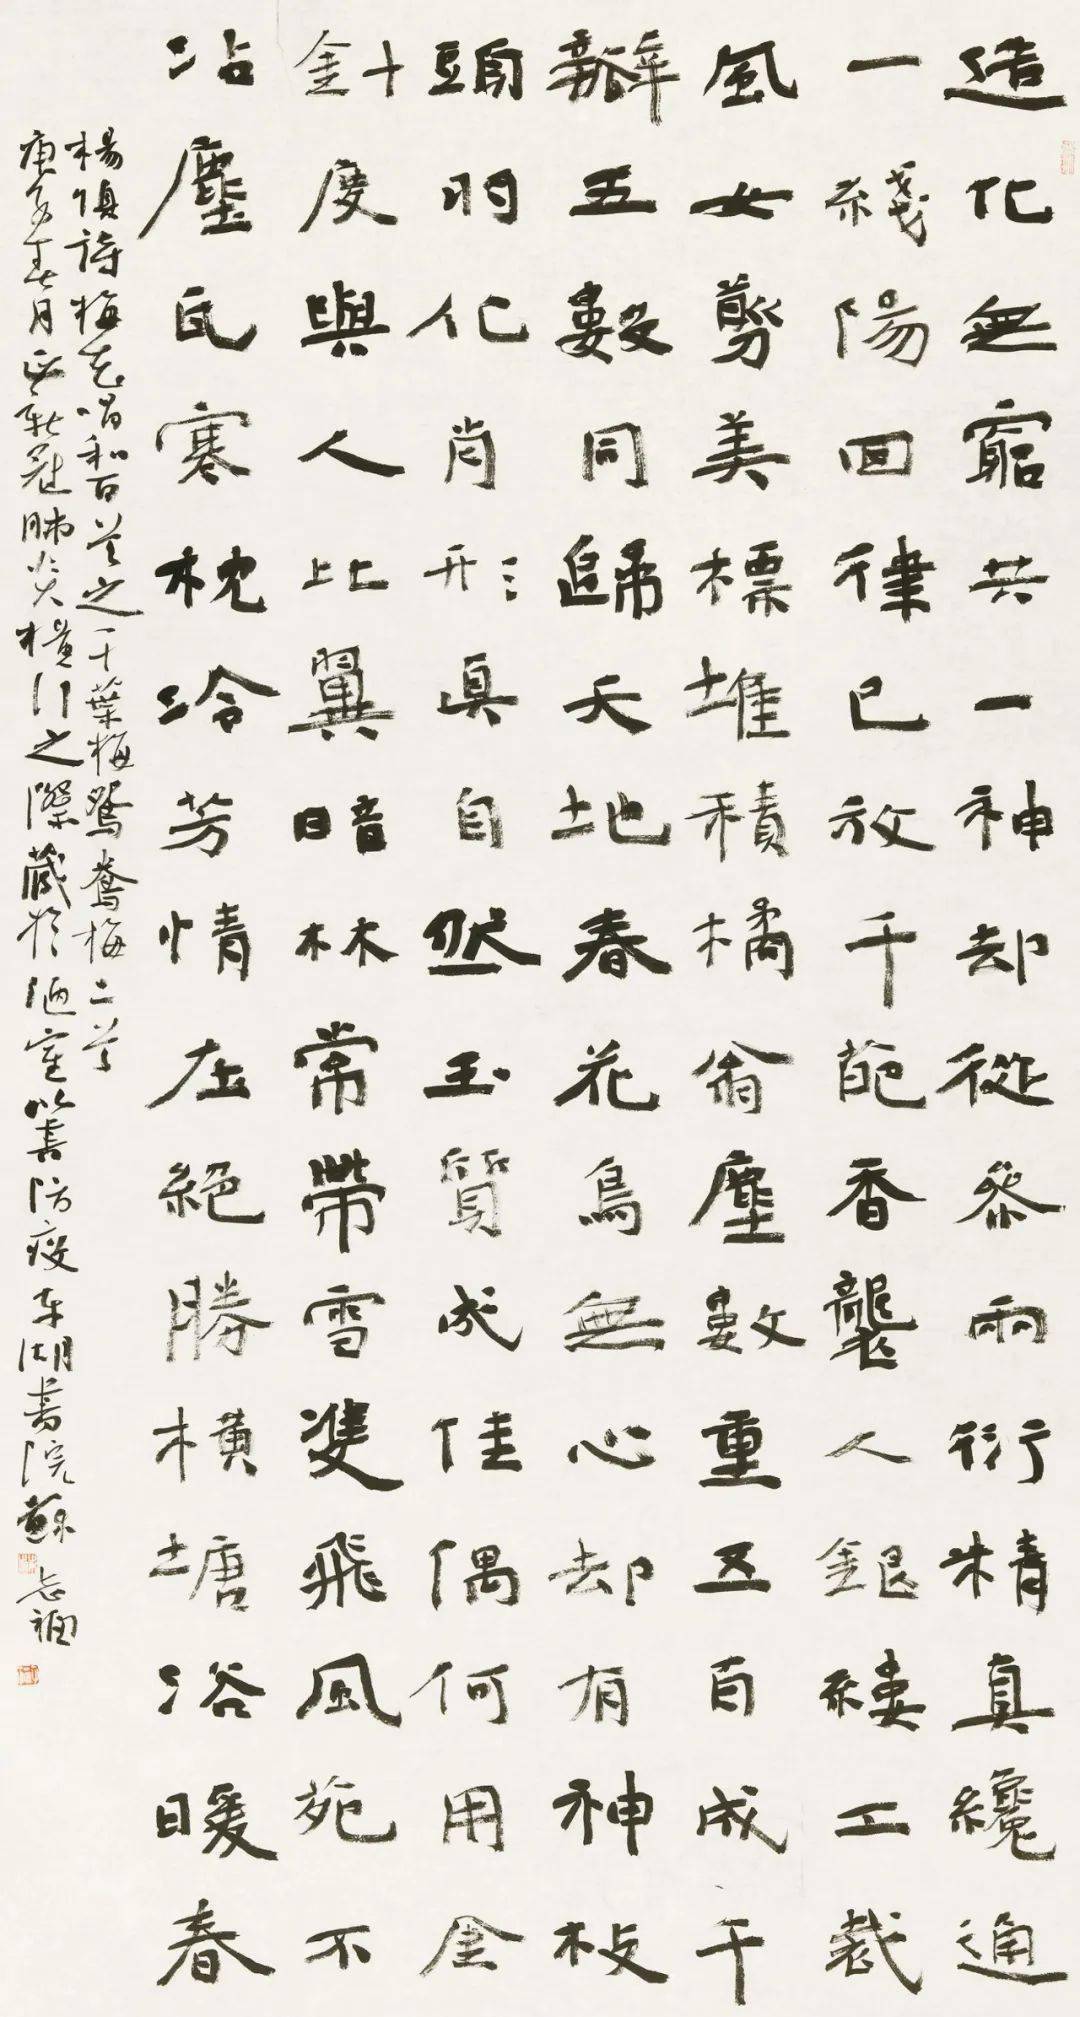 造化無窮共一神却從黍雨衍精真纔通
一綫陽回律已放千葩香襲人銀縷工裁
風女剪美標堆積橘翁塵數重五百成千
瓣五數同歸天地春花鳥無心却有神枝
頭羽化肖形真自然玉質成佳偶何用金
針度與人比翼暗林常帶雪雙飛風苑不
沾塵瓦寒枕冷芳情在絕勝橫塘浴暖春
楊慎詩梅花唱和百首之千葉梅鴛鴦梅二首
庚子春月正新冠肺炎橫行之際藏於陋室以書防疫東湖書院蘇